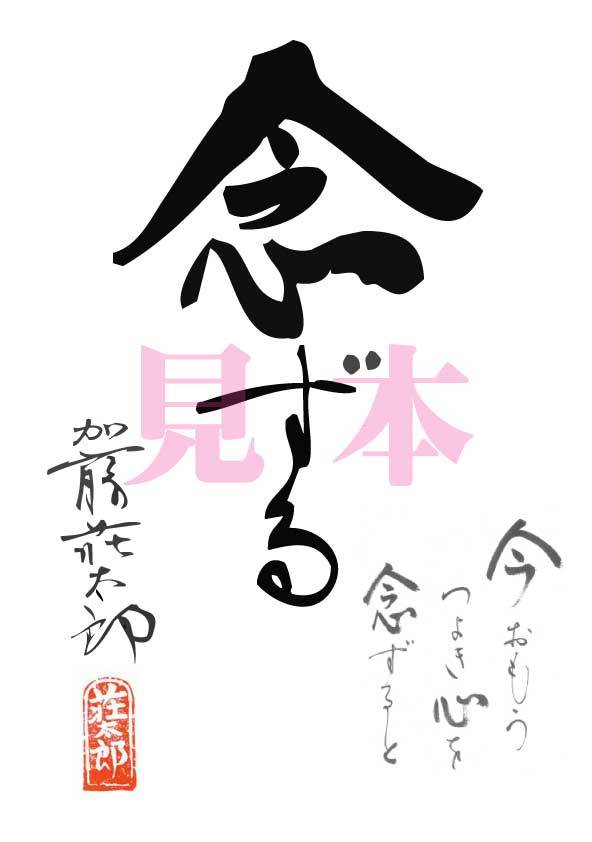 念ずる
見本
今おもう
つよき心を
念ずると
加藤荘太郎
荘太郎